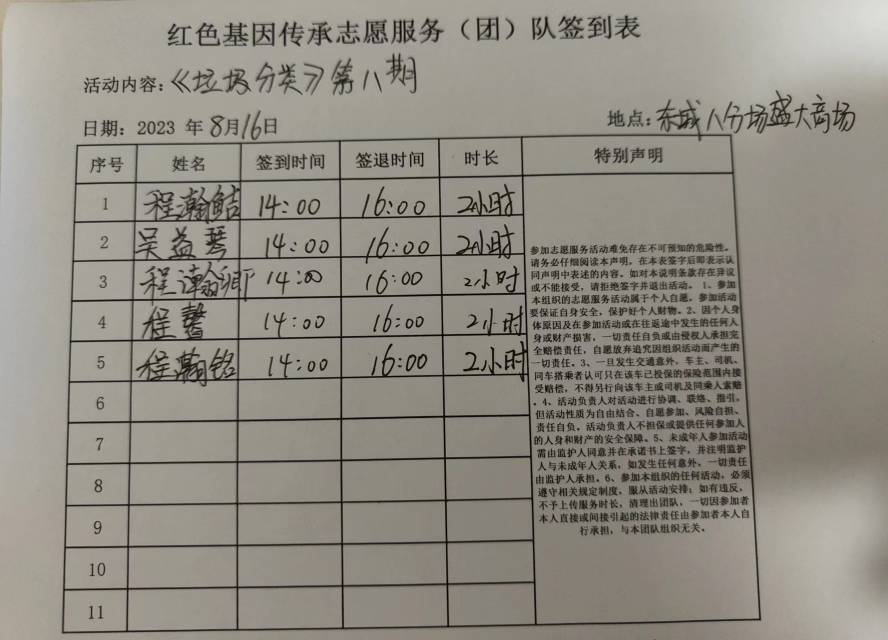 红色基因传承志愿服务（团）队签到表
活动内容：《垃圾分类》第八期
日期：2023 年 8月16日
地点：东城八分场盛大商场
序号 姓名 签到时间 签退时间 时长 特别声明
1 程瀚鲒 14:00 16:00 2小时
2 吴益琴 14:00 16:00 2小时
3 程瀚卿 14:00 16:00 2小时
4 程馨 14:00 16:00 2小时
5 程瀚铭 14:00 16:00 2小时
6
7
8
9
10
11
参加志愿服务活动难免存在不可预知的危险性。
请务必仔细阅读本声明，在本表签字后即表示认
同声明中表述的内容。如对本说明条款存在异议
或不能接受，请拒绝签字并退出活动。 1、参加
本组织的志愿服务活动属于个人自愿。参加活动
要保证自身安全，保护好个人财物。2、因个人身
体原因及在参加活动或在往返途中发生的任何人
身或财产损害，一切责任自负或由侵权人承担完
全赔偿责任，自愿放弃追究因组织活动而产生的
一切责任。3、一旦发生交通意外，车主、司机、
同车搭乘者认可只在该车已投保的保险范围内接
受赔偿，不得另行向该车主或司机及同乘人索赔
。4、活动负责人对活动进行协调、联络、指引，
但活动性质为自由结合、自愿参加、风险自担、
责任自负。活动负责人不担保或提供任何参加人
的人身和财产的安全保障。5、未成年人参加活动
需由监护人同意并在承诺书上签字，并注明监护
人与未成年人关系，如发生任何意外，一切责任
由监护人承担。6、参加本组织的任何活动，必须
遵守相关规定制度，服从活动安排；如有违反，
不予上传服务时长，清理出团队，一切因参加者
本人直接或间接引起的法律责任由参加者本人自
行承担，与本团队组织无关。